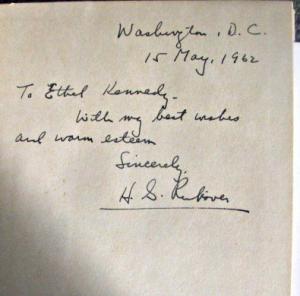 Washington, D.C.
15 May, 1962
To Ethel Kennedy -
With my best wishes
and warm esteem
Sincerely,
H. S.